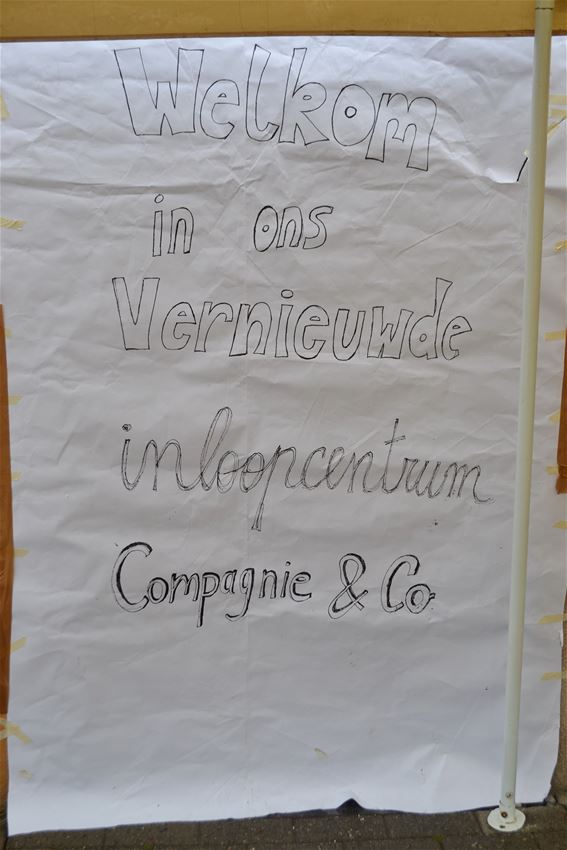 Welkom
in ons
Vernieuwde
inloopcentrum
Compagnie & Co